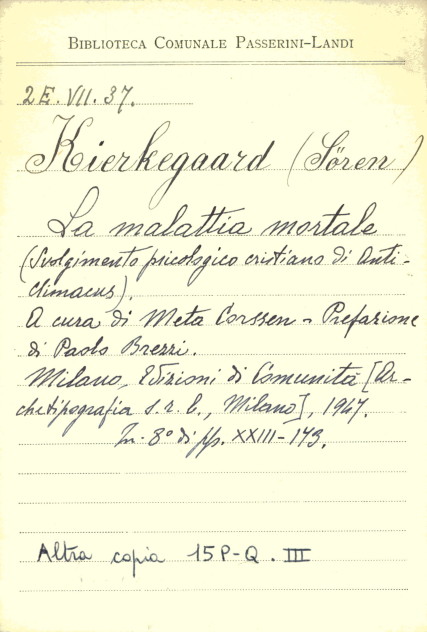 BIBLIOTECA COMUNALE PASSERINI-LANDI
2E. VII. 37.
Kierkegaard (Sören)
La malattia mortale
(Svolgimento psicologico cristiano di Anti-
climacus).
A cura di Meta Corssen - Prefazione
di Paolo Brezzi.
Milano, Edizioni di Comunità [Ar-
chetipografia s.r.l., Milano], 1947.
In-8° di pp. XXIII-173.
Altra copia 15P-Q. III